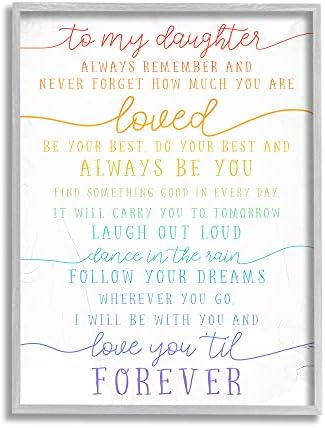 to my daughter
ALWAYS REMEMBER AND
NEVER FORGET HOW MUCH YOU ARE
loved
BE YOUR BEST, DO YOUR BEST AND
ALWAYS BE YOU
FIND SOMETHING GOOD IN EVERY DAY,
IT WILL CARRY YOU TO TOMORROW
LAUGH OUT LOUD
dance in the rain
FOLLOW YOUR DREAMS
WHEREVER YOU GO,
I WILL BE WITH YOU AND
love you til
FOREVER